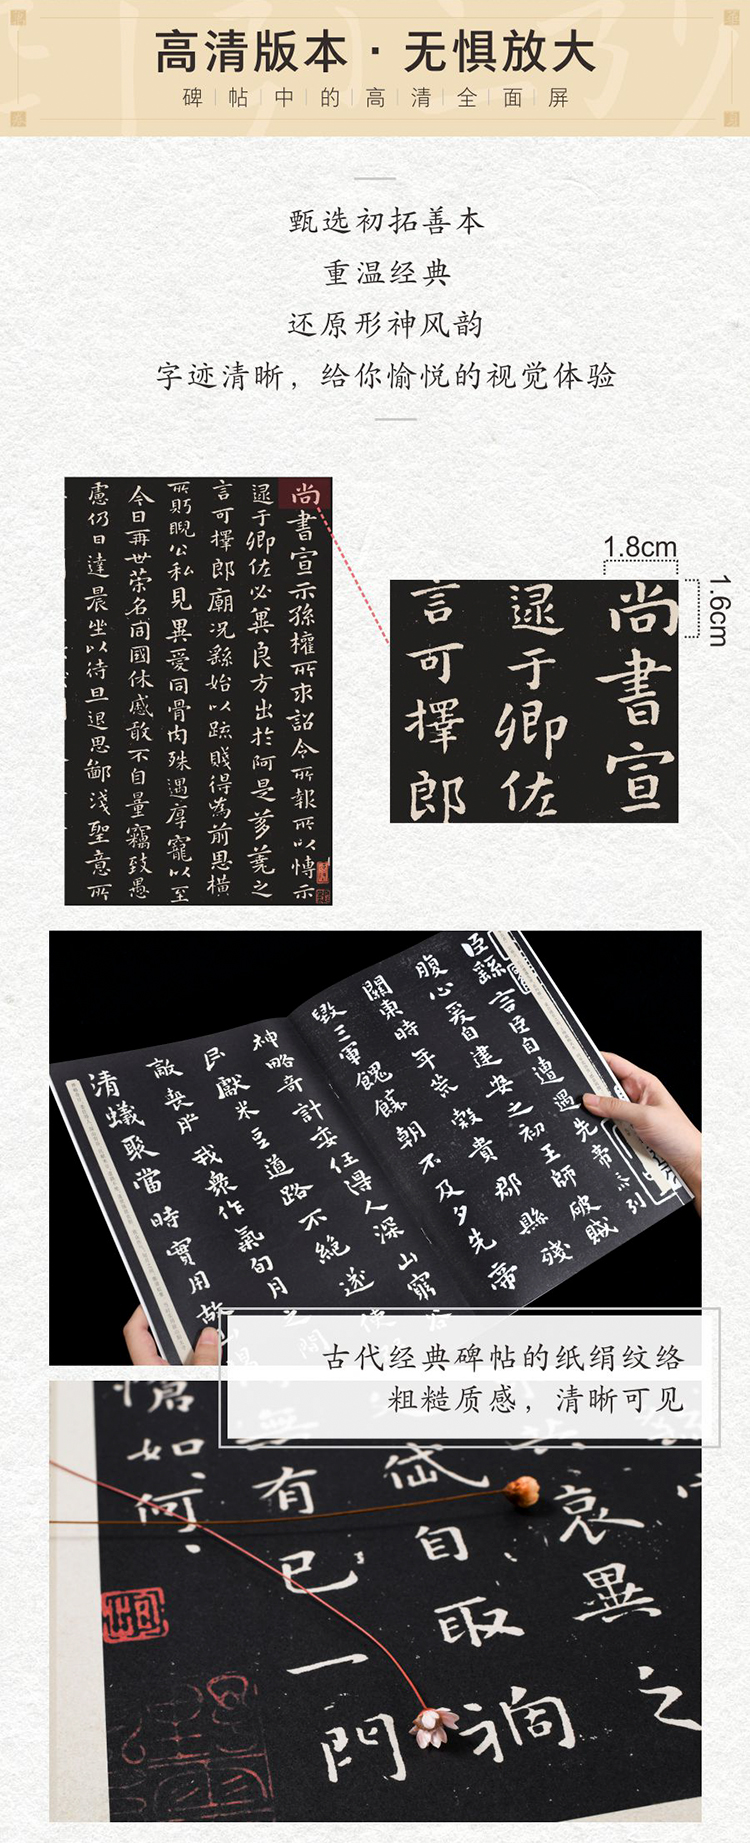 高清版本·无惧放大
碑帖中的高清全面屏
甄选初拓善本
重温经典
还原形神风韵
字迹清晰，给你愉悦的视觉体验
尚書宣示孫權所求詔令所報所以博示
逮于卿佐必冀良方出於阿是芻蕘之
言可擇郎廟況繇始以疏賤得為前恩橫
所眄睨公私見異愛同骨肉殊遇厚寵以至
今日再世荣名同國休慼敢不自量竊致愚
慮仍日達晨坐以待旦退思鄙淺聖意所
1.8cm
1.6cm
尚書宣
逮于卿佐
言可擇郎
臣繇言臣自遭遇先帝忝列
腹心爰自建安之初王師破賊
關東時年荒穀貴郡縣殘
毀三軍餽饟朝不及夕先帝
神略奇計委任得人深山窮谷
民獻米豆道路不絕遂使
敵喪膽我衆作氣旬月之間
清蟻聚當時實用故
古代经典碑帖的纸绢纹络
粗糙质感，清晰可见
愴如何
無有已一門
自取禍
哀異之